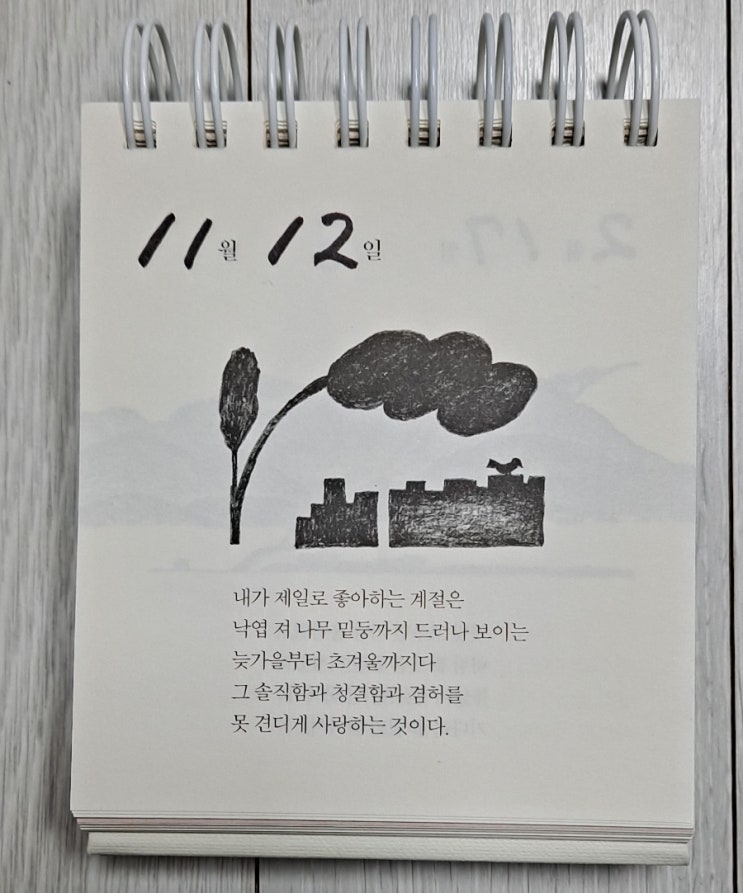 11월 12일
내가 제일로 좋아하는 계절은
낙엽 져 나무 밑둥까지 드러나 보이는
늦가을부터 초겨울까지다
그 솔직함과 청결함과 겸허를
못 견디게 사랑하는 것이다.